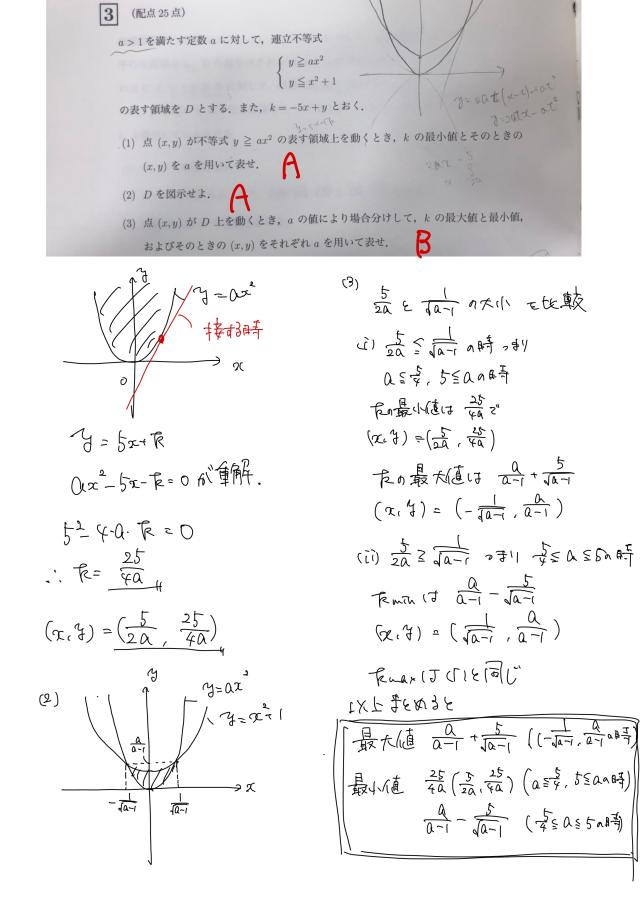 3 (配点 25 点)
a > 1 を満たす定数 a に対して，連立不等式
y ≧ ax²
y ≦ x² + 1
の表す領域を D とする．また，k = −5x + y とおく．
(1) 点 (x, y) が不等式 y ≧ ax² の表す領域上を動くとき，k の最小値とそのときの
(x, y) を a を用いて表せ．
A
(2) D を図示せよ．
A
(3) 点 (x, y) が D 上を動くとき，a の値により場合分けして，k の最大値と最小値，
およびそのときの (x, y) をそれぞれ a を用いて表せ．
B
y
y=ax²
接する時
x
0
y = 5x+k
ax²−5x−k=0 が重解．
5²−4·a·k = 0
∴ k = 25/4a
(x, y) = (5/2a , 25/4a)
(2)
y
y=ax²
y=x²+1
a/a-1
x
-1/√a-1
1/√a-1
(3)
5/2a と 1/√a-1 の大小 を比較
(i) 5/2a ≦ 1/√a-1 の時 つまり
a≦5/4, 5≦a の時
kの最小値は 25/4a で
(x, y) = (5/2a , 25/4a)
kの最大値は a/a-1 + 5/√a-1
(x, y) = (-1/√a-1 , a/a-1)
(ii) 5/2a ≧ 1/√a-1 つまり 5/4≦a≦5の時
kmin は a/a-1 − 5/√a-1
(x, y) = (1/√a-1 , a/a-1)
kmaxは(i)と同じ
以上まとめると
最大値 a/a-1 + 5/√a-1 ((-1/√a-1, a/a-1の時)
最小値 25/4a (5/2a, 25/4a) (a≦5/4, 5≦aの時)
a/a-1 − 5/√a-1 (5/4≦a≦5の時)